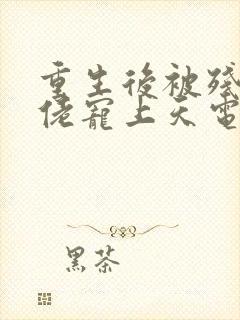 重生後被殘
佬寵上天電
黑茶